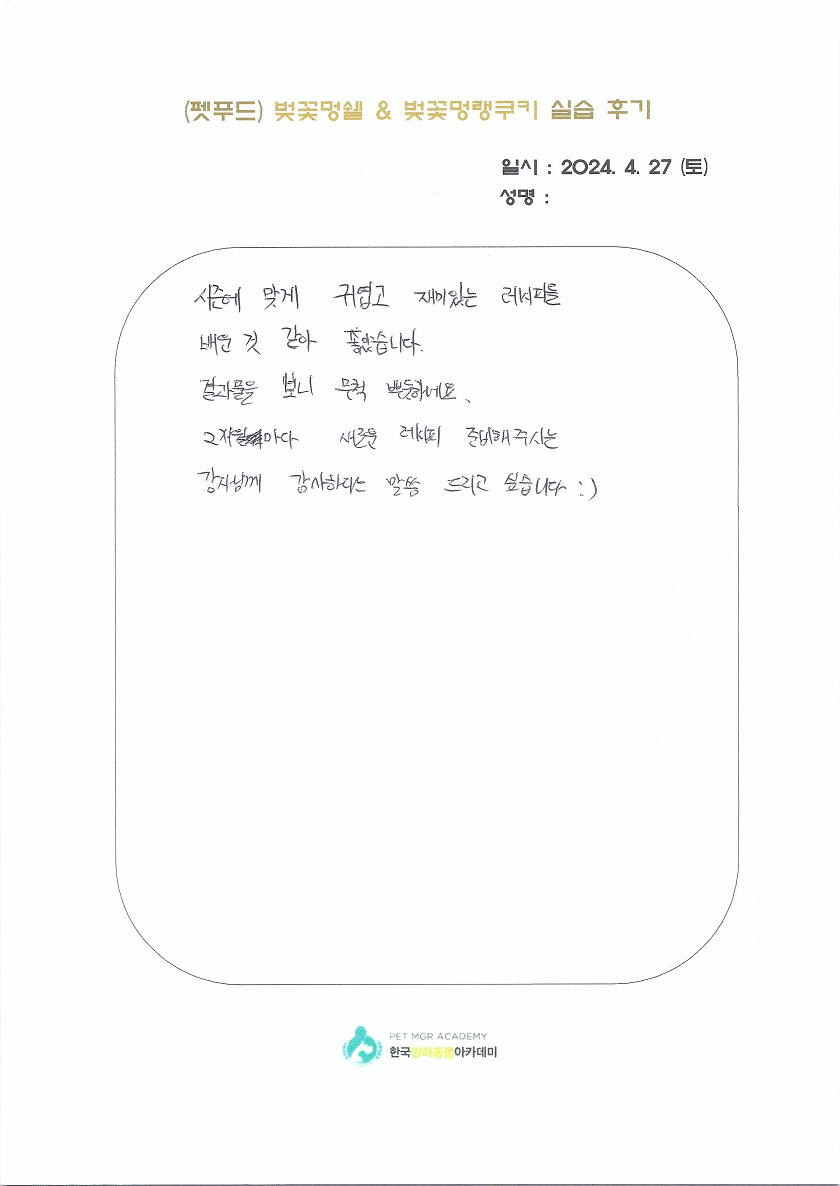 (펫푸드) 벚꽃멍쉘 & 벚꽃멍랭쿠키 실습 후기
일시 : 2024. 4. 27 (토)
성명 :
시즌에 맞게 귀엽고 재미있는 레시피를
배운 것 같아 좋았습니다.
결과물을 보니 무척 뿌듯하네요.
2개월마다 새로운 레시피 준비해주시는
강사님께 감사하다는 말씀 드리고 싶습니다 :)
PET MGR ACADEMY
한국반려동물아카데미